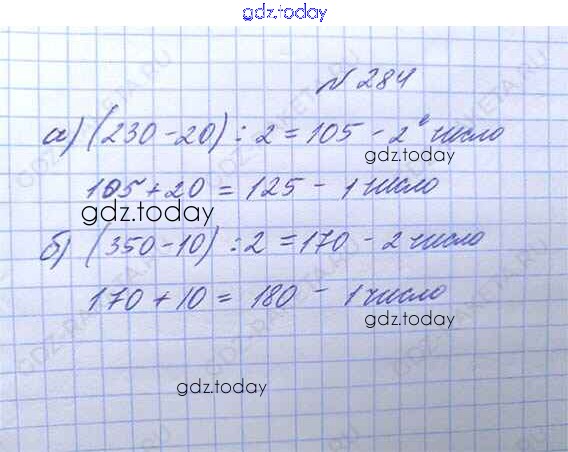 gdz.today
№ 284
а) (230 - 20) : 2 = 105 - 2 число
gdz.today
105 + 20 = 125 - 1 число
gdz.today
б) (350 - 10) : 2 = 170 - 2 число
170 + 10 = 180 - 1 число
gdz.today
gdz.today